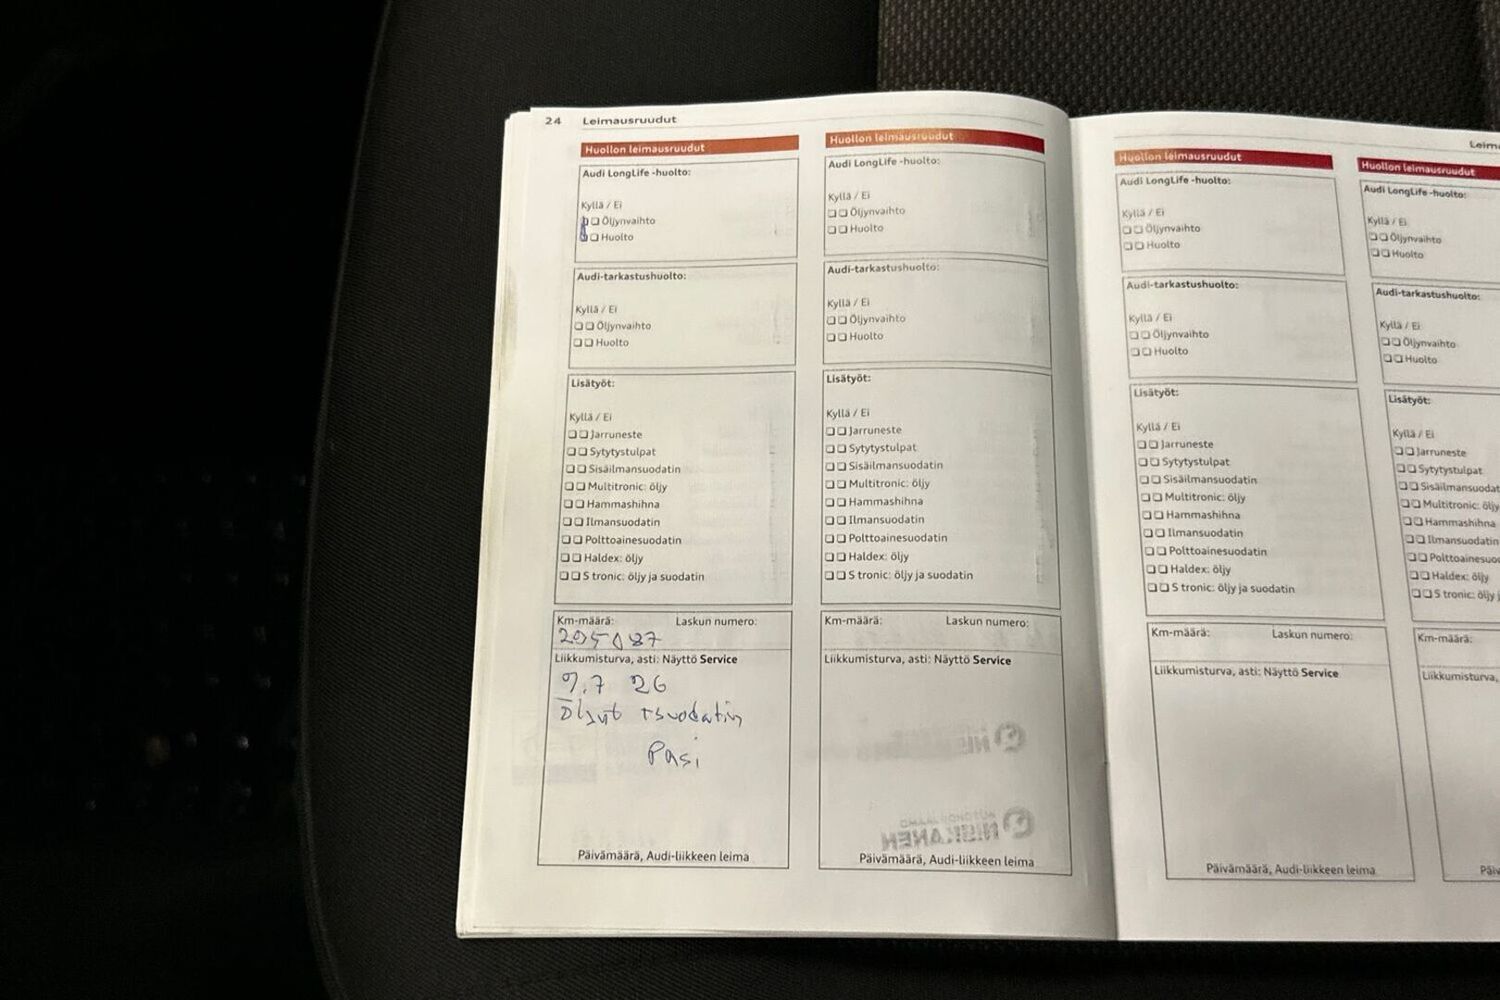 24 Leimausruudut
Huollon leimausruudut
Audi LongLife -huolto:
Kyllä / Ei
Öljynvaihto
Huolto
Audi-tarkastushuolto:
Kyllä / Ei
Öljynvaihto
Huolto
Lisätyöt:
Kyllä / Ei
Jarruneste
Sytytystulpat
Sisäilmansuodatin
Multitronic: öljy
Hammashihna
Ilmansuodatin
Polttoainesuodatin
Haldex: öljy
S tronic: öljy ja suodatin
Km-määrä: Laskun numero:
205087
Liikkumisturva, asti: Näyttö Service
9.7 26
Öljyt suodatin
Pasi
Päivämäärä, Audi-liikkeen leima
Huollon leimausruudut
Audi LongLife -huolto:
Kyllä / Ei
Öljynvaihto
Huolto
Audi-tarkastushuolto:
Kyllä / Ei
Öljynvaihto
Huolto
Lisätyöt:
Kyllä / Ei
Jarruneste
Sytytystulpat
Sisäilmansuodatin
Multitronic: öljy
Hammashihna
Ilmansuodatin
Polttoainesuodatin
Haldex: öljy
S tronic: öljy ja suodatin
Km-määrä: Laskun numero:
Liikkumisturva, asti: Näyttö Service
Päivämäärä, Audi-liikkeen leima
Huollon leimausruudut
Audi LongLife -huolto:
Kyllä / Ei
Öljynvaihto
Huolto
Audi-tarkastushuolto:
Kyllä / Ei
Öljynvaihto
Huolto
Lisätyöt:
Kyllä / Ei
Jarruneste
Sytytystulpat
Sisäilmansuodatin
Multitronic: öljy
Hammashihna
Ilmansuodatin
Polttoainesuodatin
Haldex: öljy
S tronic: öljy ja suodatin
Km-määrä: Laskun numero:
Liikkumisturva, asti: Näyttö Service
Päivämäärä, Audi-liikkeen leima
Leim
Huollon leimausruudut
Audi LongLife -huolto:
Kyllä / Ei
Öljynvaihto
Huolto
Audi-tarkastushuolto:
Kyllä / Ei
Öljynvaihto
Huolto
Lisätyöt:
Kyllä / Ei
Jarruneste
Sytytystulpat
Sisäilmansuodat
Multitronic: öljy
Hammashihna
Ilmansuodatin
Polttoainesuo
Haldex: öljy
S tronic: öljy j
Km-määrä:
Liikkumisturva,
Päiv